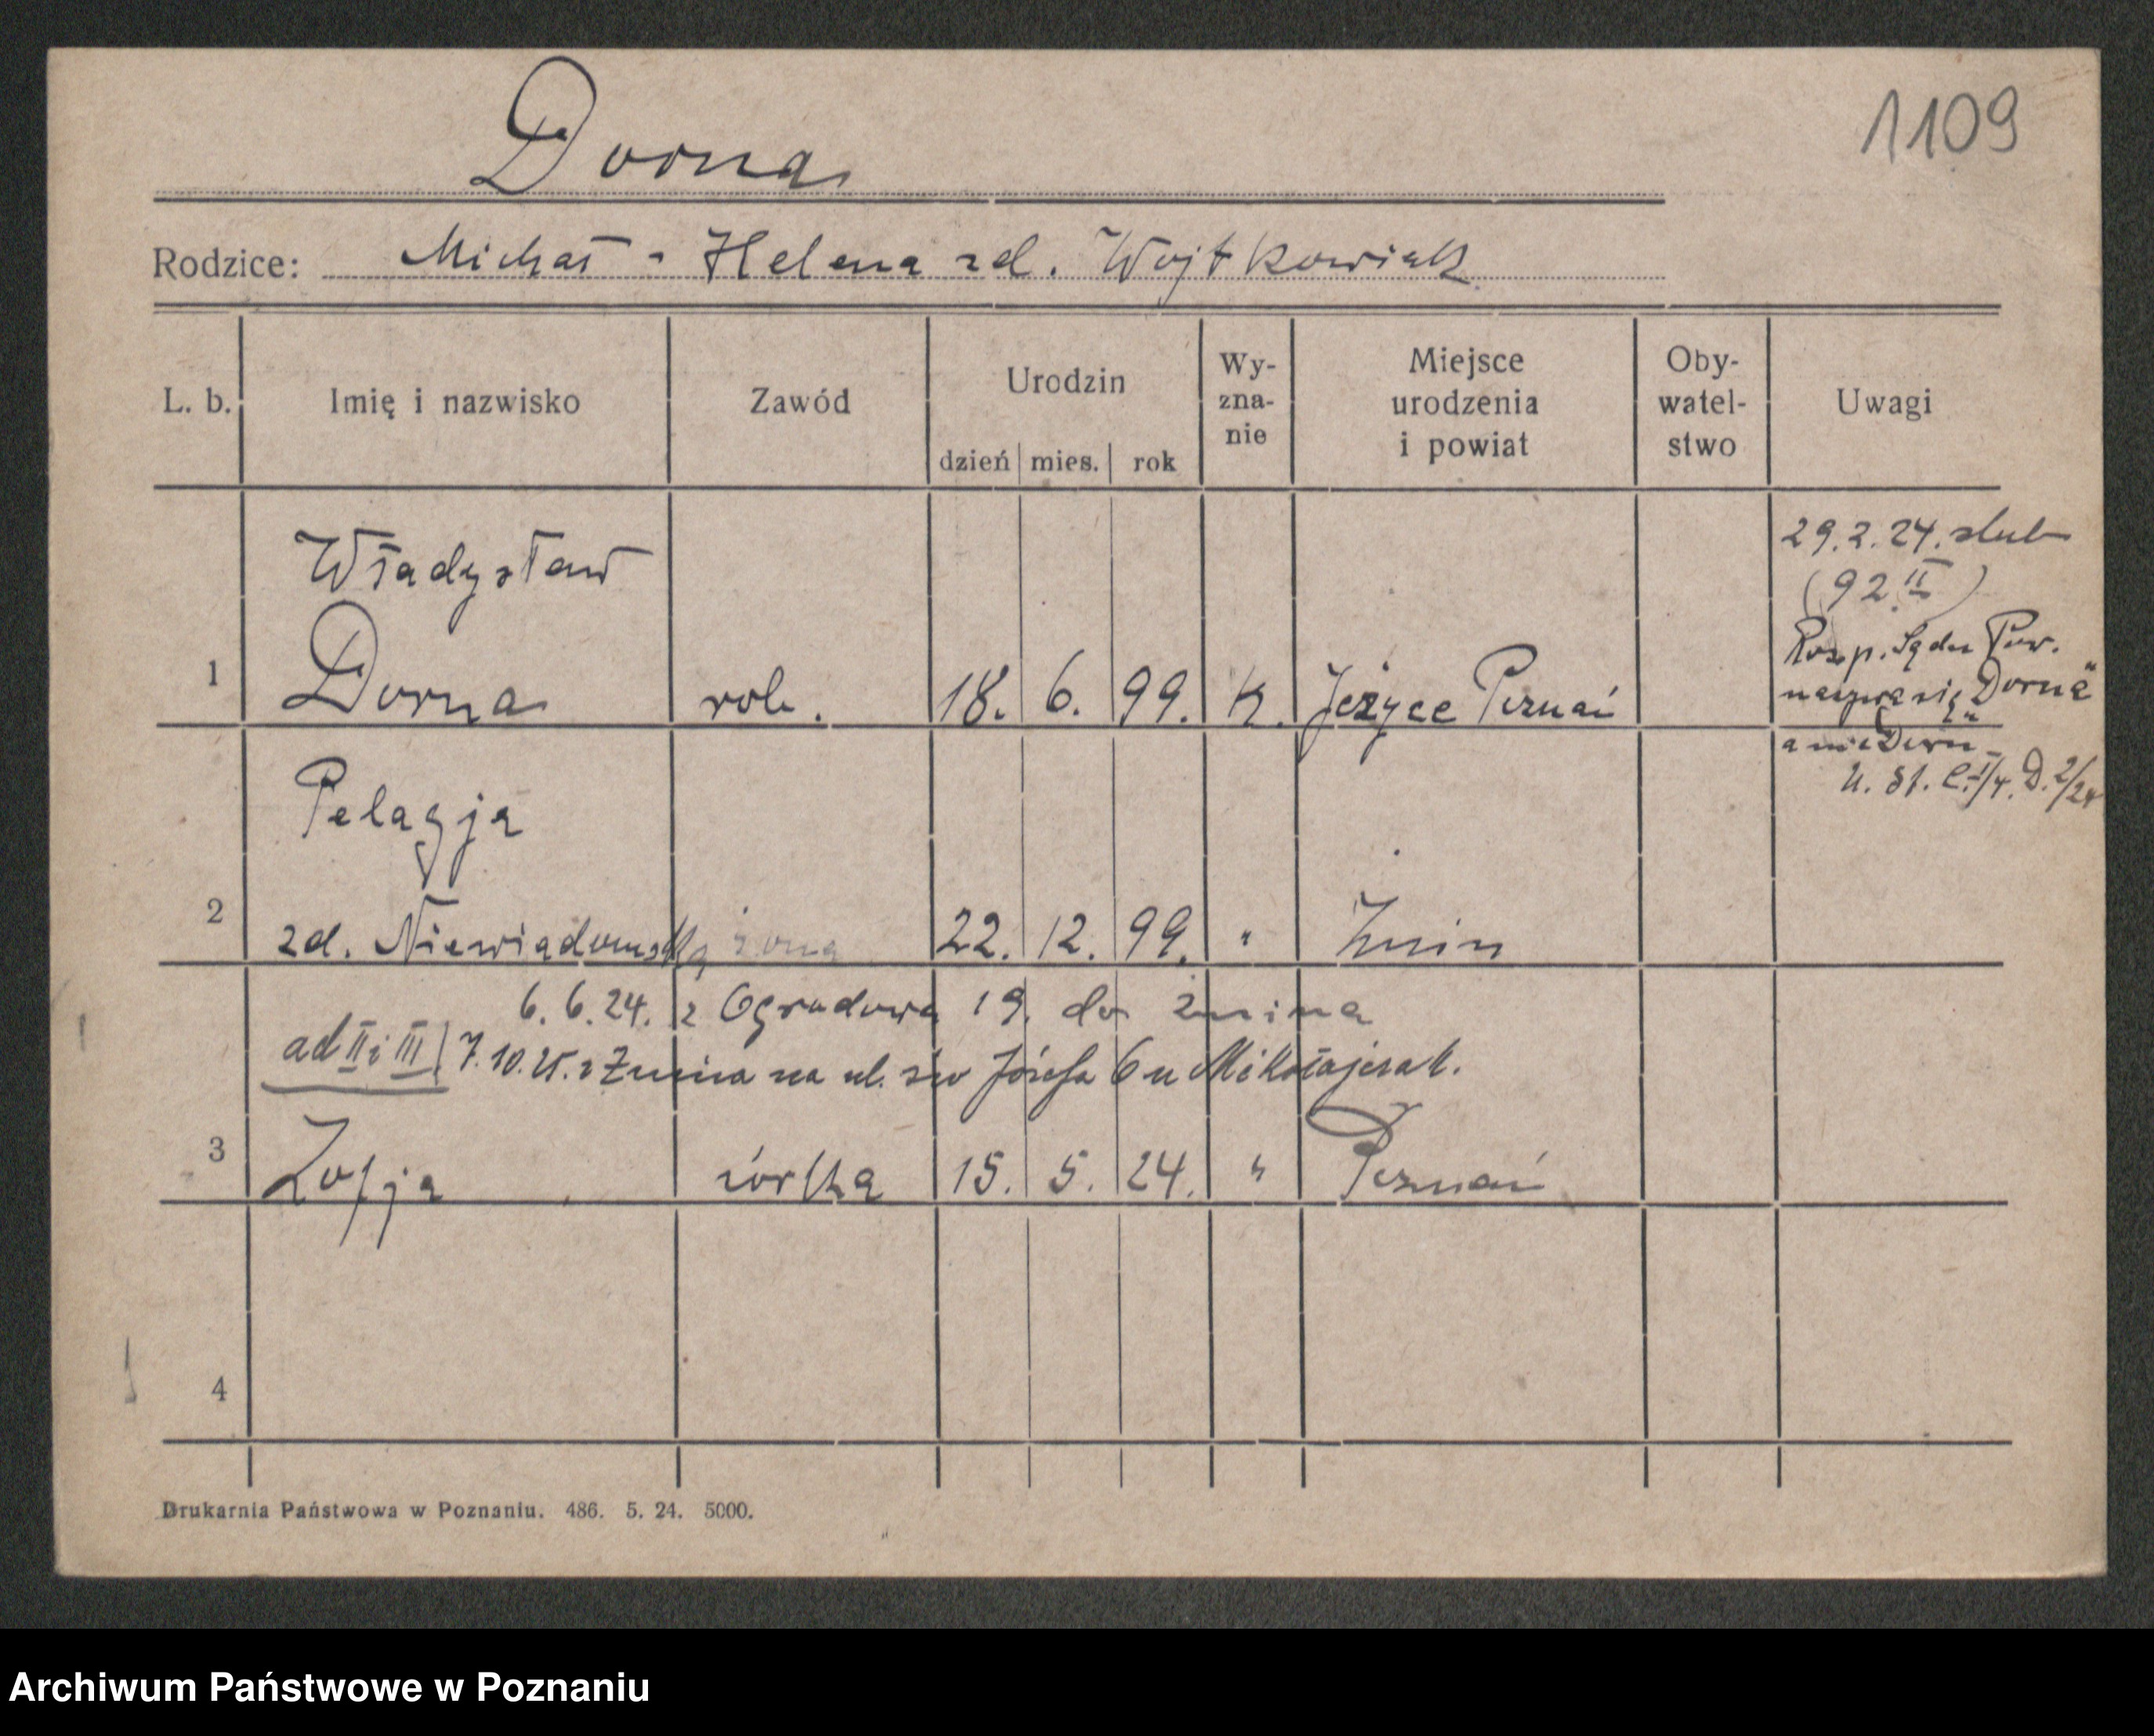 1109
Dorna
Rodzice: Michał - Helena zd. Wojtkowiak
L. b. Imię i nazwisko Zawód Urodzin dzień mies. rok Wy-zna-nie Miejsce urodzenia i powiat Oby-watel-stwo Uwagi
29.2.24. ślub
(92 II)
Władysław
1 Dorna rob. 18. 6. 99. K. Jeżyce Poznań
Rozp. Sądu Pow.
nazywa się „Dorna"
a nie Dorn
Pelagja
2 zd. Niewiadomska żona 22. 12. 99. " Żnin
6.6.24. z Ogrodowa 19. do Żnina
ad II i III / 7.10.25. z Żnina na ul. św Józefa 6 u Mikołajczak.
3 Zofja córka 15. 5. 24. " Poznań
4
Drukarnia Państwowa w Poznaniu. 486. 5. 24. 5000.
Archiwum Państwowe w Poznaniu